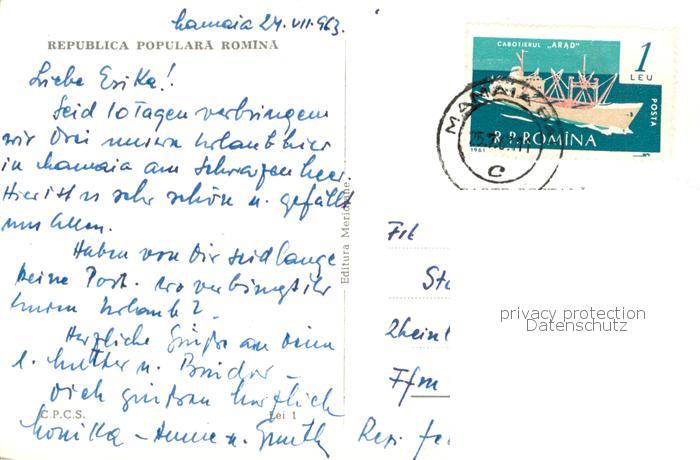 Mamaia 24.VII.963.
REPUBLICA POPULARĂ ROMÎNĂ
Liebe Erika!
Seid 10 Tagen verbringen
wir Drei unsern Urlaub hier
in Mamaia am Schwarzen Meer.
Hier ist es sehr schön u. gefällt
uns allen.
Haben von Dir seid lange
keine Post. Wo verbringt ihr
Euren Urlaub?
Herzliche Grüße an Deine
l. Mutter u. Bruder –
Dich grüßen herzlich
Monika – Anne u.
C.P.C.S.
Lei 1
Editura Meridiane
CABOTIERUL „ARAD"
1
LEU
POSTA
R.P.ROMÎNA
1961
MAMAIA
C
Frl
Rhein
Ffm
privacy protection
Datenschutz